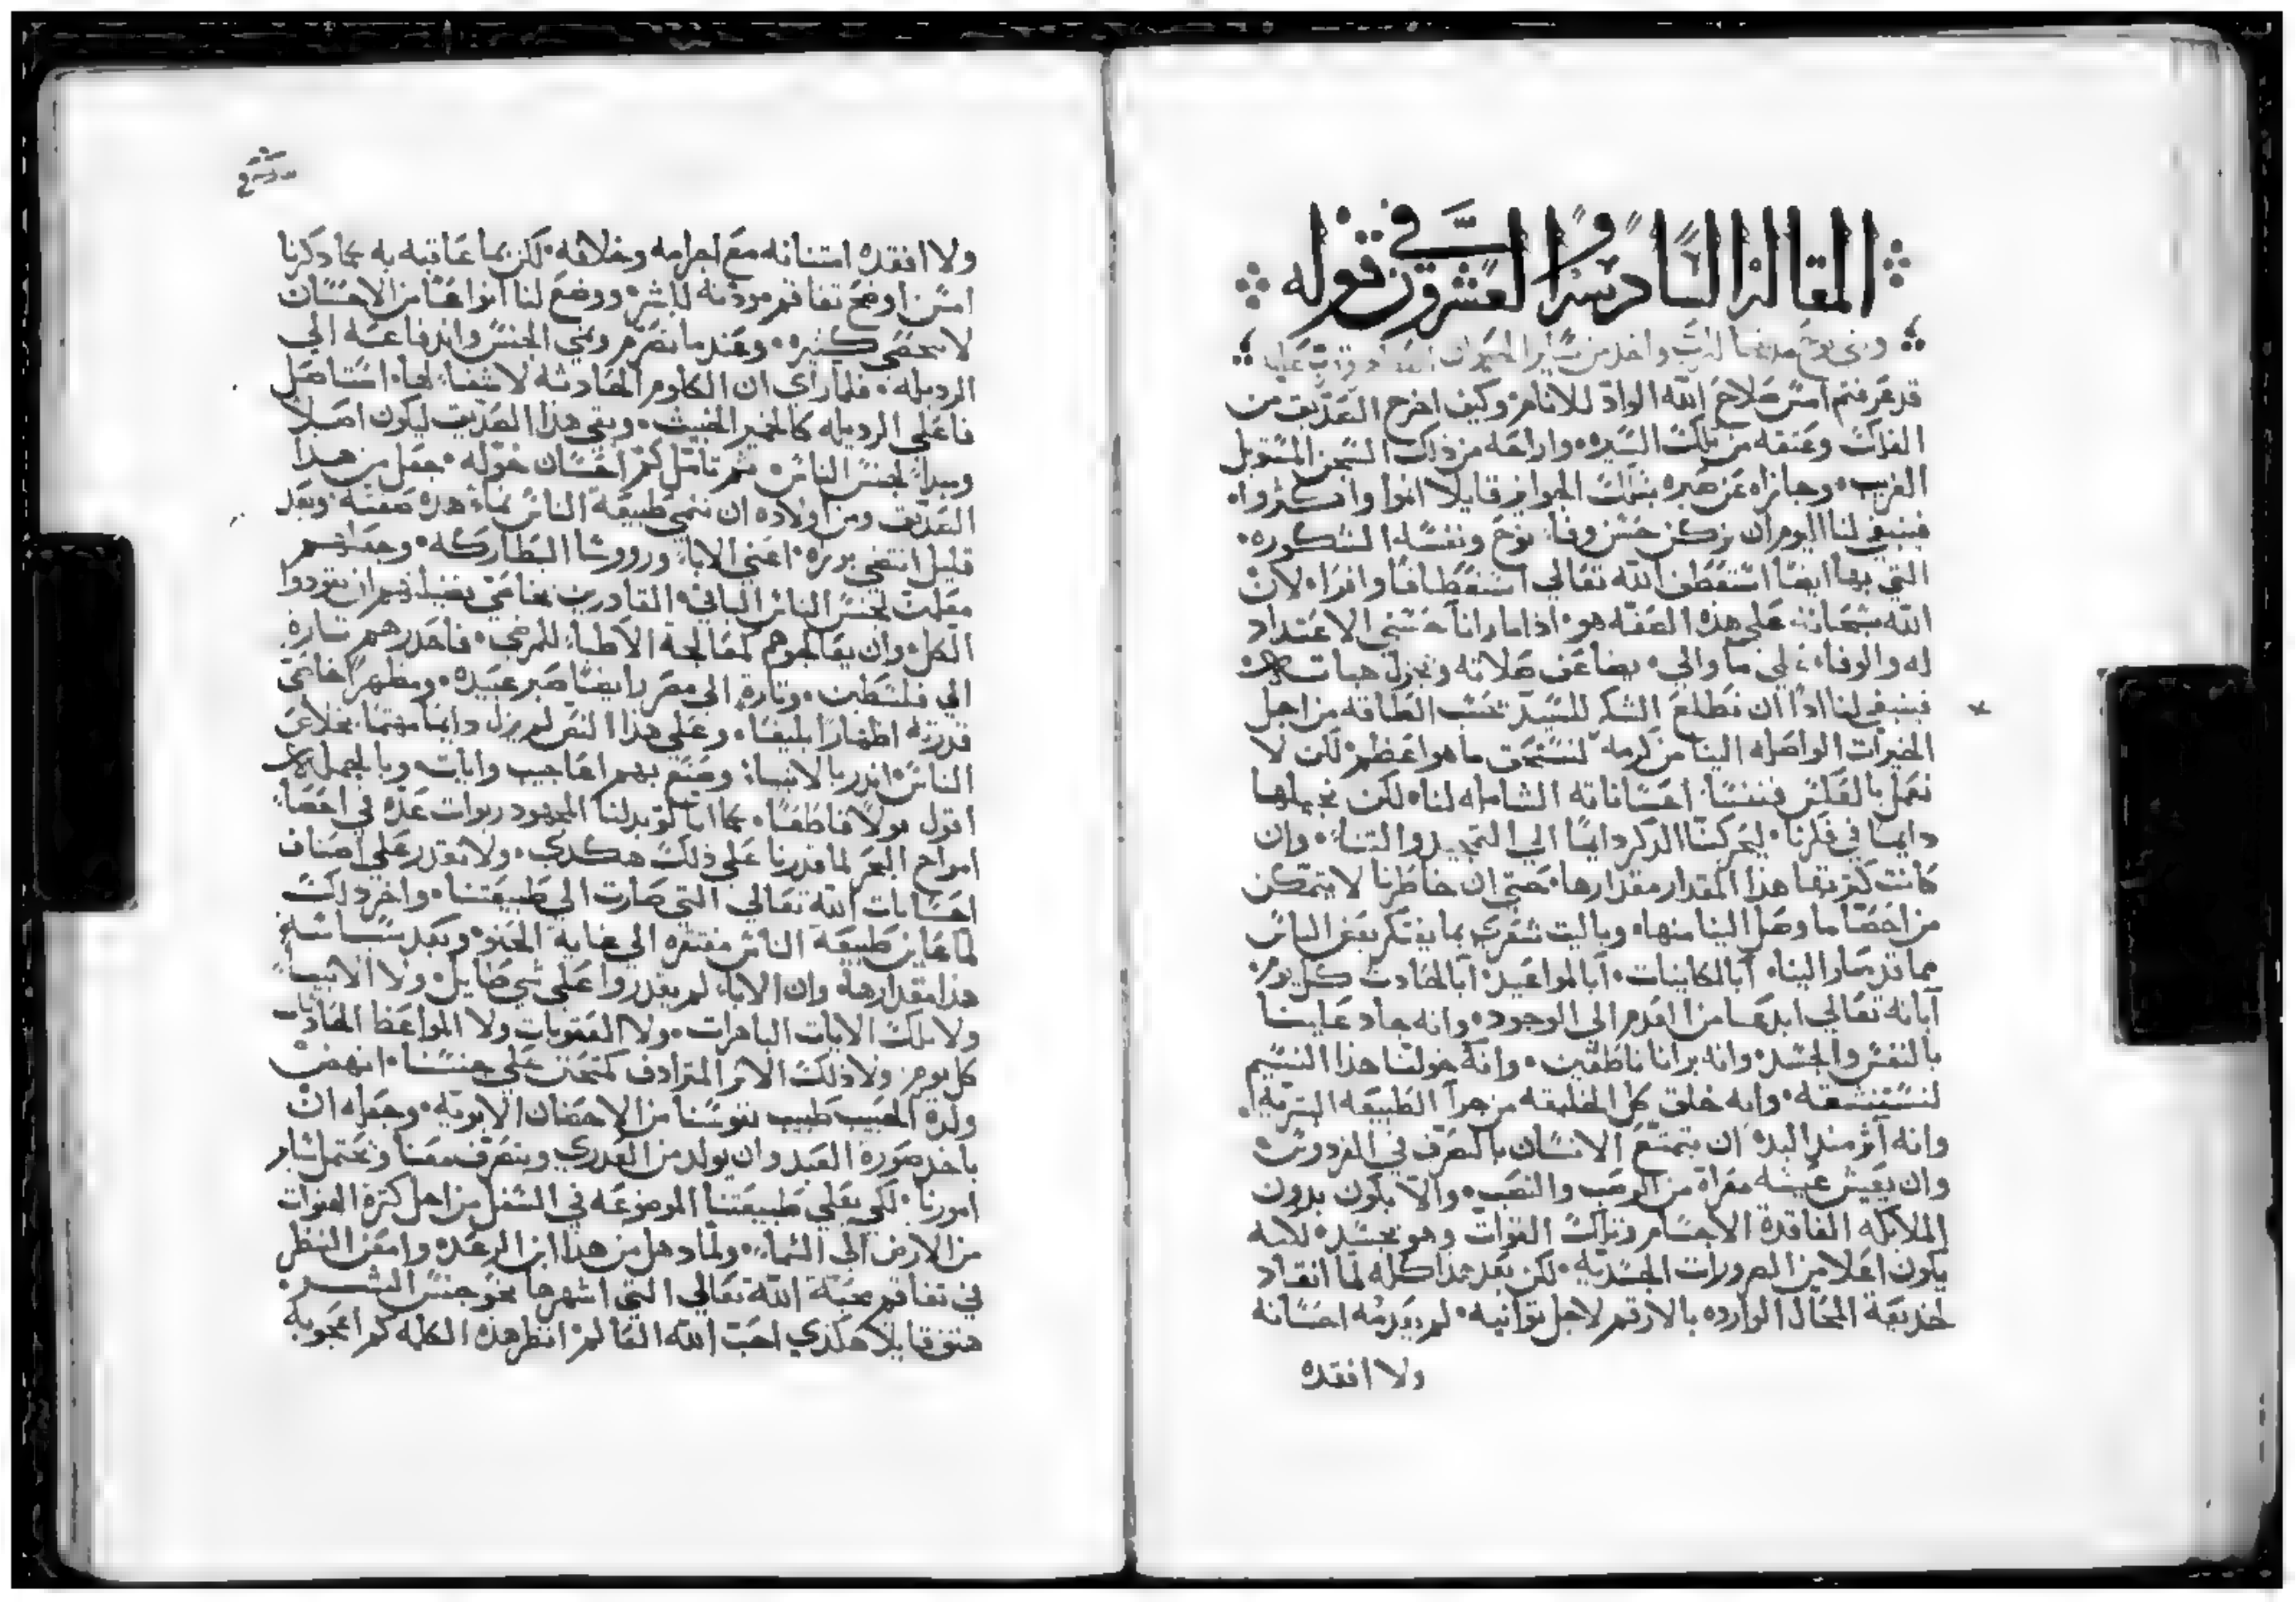 المقالة السادسة والعشرون في قوله
وبنى نوح مذبحا للرب واخذ من ساير الحيوان وقرب عليه
قد عرفتم امس صلاح الله الواد للانام وكيف اخرج الصديق من
الفلك وعتقه من تلك السيره واراحه من ذلك السجن المستوبل
الغريب وجازاه عن صبره بتلك الجوايز قايلا انموا واكثروا
فينبغي لنا اليوم ان نركز حسن وفا نوح ونفسه الشكوره
التي بها ايضا استعطف الله تعالي استعطافا وافرا لان
الله سبحانه علي هذه الصفه هو اذا ما رانا حسني الاعتداد
له والوفا علي ما والي يضاعف صلاته ويجزل هباته
فينبغي لنا اذا ان نطلع الشكر للسيد حسب الطاقه من اجل
الخيرات الواصله الينا من كرمه لنستحق ما هو اعظم لكن لا
نعمل بالعكس فننسا احساناته الشامله لنا لكن نجيلها
دايما في فكرنا ليحركنا الذكر دايما الي التمجيد والثناء وان
كانت كثرتها هذا المقدار مقدارها حتي ان خاطرنا لا يتمكن
من احصا ما وصل الينا منها وياليت شعري بما يفتكر بعض الناس
مما قد صار الينا ابالكاينات ابالمواعيد ابالحادث كل يوم
اباته تعالي ابدعنا من العدم الي الوجود وانه جاد علينا
بالنفس والجسد وانه برانا ناطقين وانه خولنا هذا النسيم
لنستنشقه وانه خلق كل الخليقه من جرا الطبيعه البشريه
وانه آثر منذ البدء ان يتمتع الانسان بالتصرف في الفردوس
وان يعيش عيشه معراة من الوصب والنصب والا يكون بدون
الملايكه الفاقدة الاجسام وتلك القوات وهو بجسد لانه
يكون اعلا من الضرورات الجسديه لكن بعد هذا كله لما انقاد
لخديعة المحال الوارده بالارقم لاجل توانيه لم يعدمه احسانه
ولا افقده
ولا افقده امتنانه مع اجرامه وخلافه لكن بما عاقبه به كما ذكرنا
امس اوضح تفاقم مودته للبشر ووضع لنا انواعا من الاحسان
لا تحصي كثيره وعندما تصرم ونمي الجنس واندفاعه الي
الرديله فلما راى ان الكلوم الحادثه لا شفا لها استاصل
فاعلي الرديله كالخمير الخبيث وبقي هذا الصديق ليكون اصلا
ومبدا لجنس الناس ثم تامل كم احسان خوله جعل من هذا
الصديق ومن اولاده ان تنمي طبيعة الناس نماء هذه صفته وبعد
قليل انتضي بررة اعني الابا ورووسا البطاركه وجعلهم
معلمين لجنس الناس الباقي القادرين بخاصي فضيلتهم ان يقودوا
الكل وان يعالجوهم كمعالجة الاطبا للمرضي فاحدرهم تاره
الي فلسطين وتارة الي مصر رايضا صبر عبيده ومظهرا خاصي
قدرته اظهارا بليغا وعلي هذا النص لم يزل دايما مهتما بخلاص
الناس انذر بالانبيا وصنع بهم اعاجيب وايات وبالجمله
اقول قولا قاطعا كما اننا لو بذلنا المجهود ربوات عدة في احصا
امواج البحر لما قدرنا علي ذلك هكذي ولا نقدر علي اصناف
احسانات الله تعالي التي صارت الي طبيعتنا واخر ذلك
لما عاين طبيعة الناس مفتقره الي عناية الحنو وبعد سياسة
هذا مقدارها وان الاباء لم يقدروا علي شي طايل ولا الانبيا
ولا تلك الايات الباهرات ولا العقوبات ولا المواعظ الحادثات
كل يوم ولا ذلك الاثر المترادف كتحنن علي جنسنا انهض
ولده الحبيب طبيب نفوسنا من الاحضان الابويه وجعله ان
ياخذ صورة العبد وان يولد من العذري ويتصرف معنا ويحتمل ساير
امورنا لكي يعلي طبيعتنا الموضوعه في السفل من اجل كثرة الهفوات
من الارض الي السماء ولما دهل من هذا ابن الرعد وامعن النظر
في تفاقم محبة الله تعالي التي اشهرها نحو جنس البشر
هتف قايلا هكذي احب الله العالم انظر هذه الكلمه كم اعجوبه